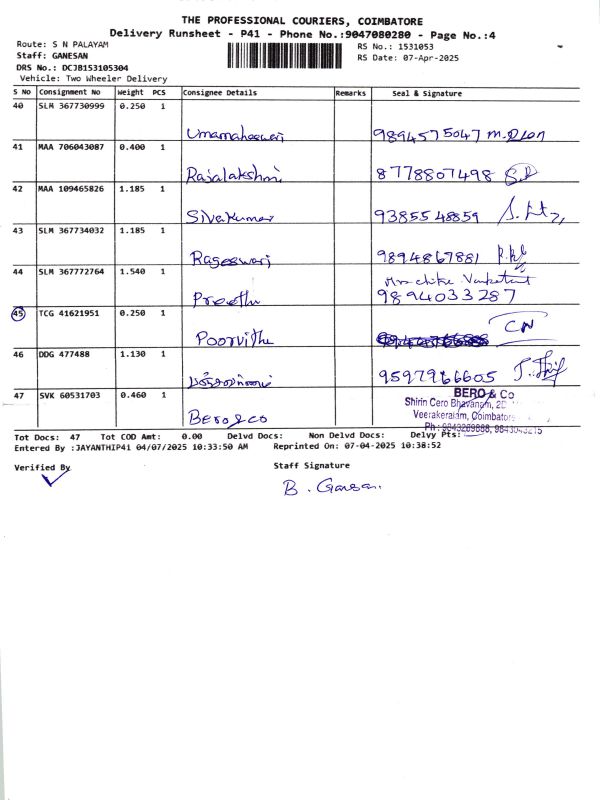 THE PROFESSIONAL COURIERS, COIMBATORE
Delivery Runsheet - P41 - Phone No.:9047080280 - Page No.:4
Route: S N PALAYAM
RS No.: 1531053
Staff: GANESAN
RS Date: 07-Apr-2025
DRS No.: DCJB153105304
Vehicle: Two Wheeler Delivery
S No Consignment No Weight PCS Consignee Details Remarks Seal & Signature
40 SLM 367730999 0.250 1
Umamaheswari 9894575047
41 MAA 706043087 0.400 1
Rajalakshmi 8778807498
42 MAA 109465826 1.185 1
Sivakumar 9385548859
43 SLM 367734032 1.185 1
Rageswari 9894867881
44 SLM 367772764 1.540 1
Preethi 9894033287
45 TCG 41621951 0.250 1
Poorvithe CN
46 DDG 477488 1.130 1
9597966605
47 SVK 60531703 0.460 1
Bero & co
BERO & Co
Shirin Cero Bhavanam,
Veerakeralam, Coimbatore
Ph :
Tot Docs: 47 Tot COD Amt: 0.00 Delvd Docs: Non Delvd Docs: Delvy Pts:
Entered By :JAYANTHIP41 04/07/2025 10:33:50 AM Reprinted On: 07-04-2025 10:38:52
Verified By
Staff Signature
B. Ganesan